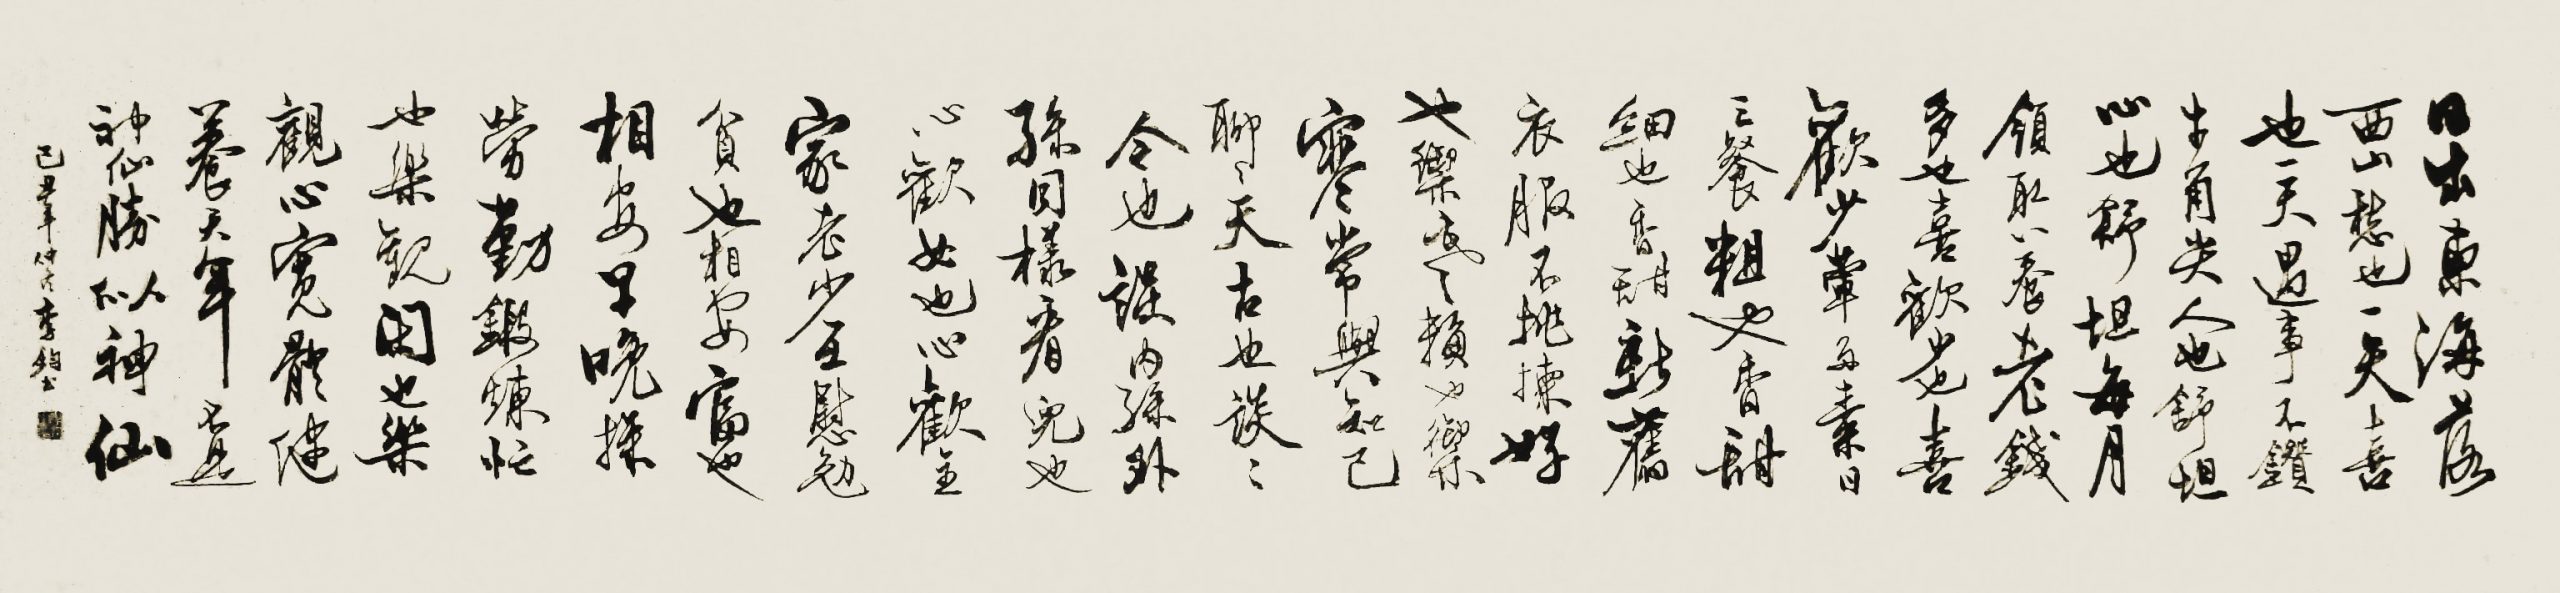 日出東海落
西山愁也一天喜
也一天遇事不鑽
牛角尖人也舒坦
心也舒坦每月
領取養老錢
多也喜歡少也喜
歡少葷多素日
三餐粗也香甜
細也香甜新舊
衣服不挑揀好
也禦寒賴也禦
寒常與知己
聊聊天古也談談
今也談內孫外
孫同樣看兒也
心歡女也心歡全
家老少互慰勉
貧也相安富也
相安早晚操
勞勤鍛煉忙
也樂觀閑也樂
觀心寬體健
養天年
神仙勝似神仙
己丑年仲 李 書